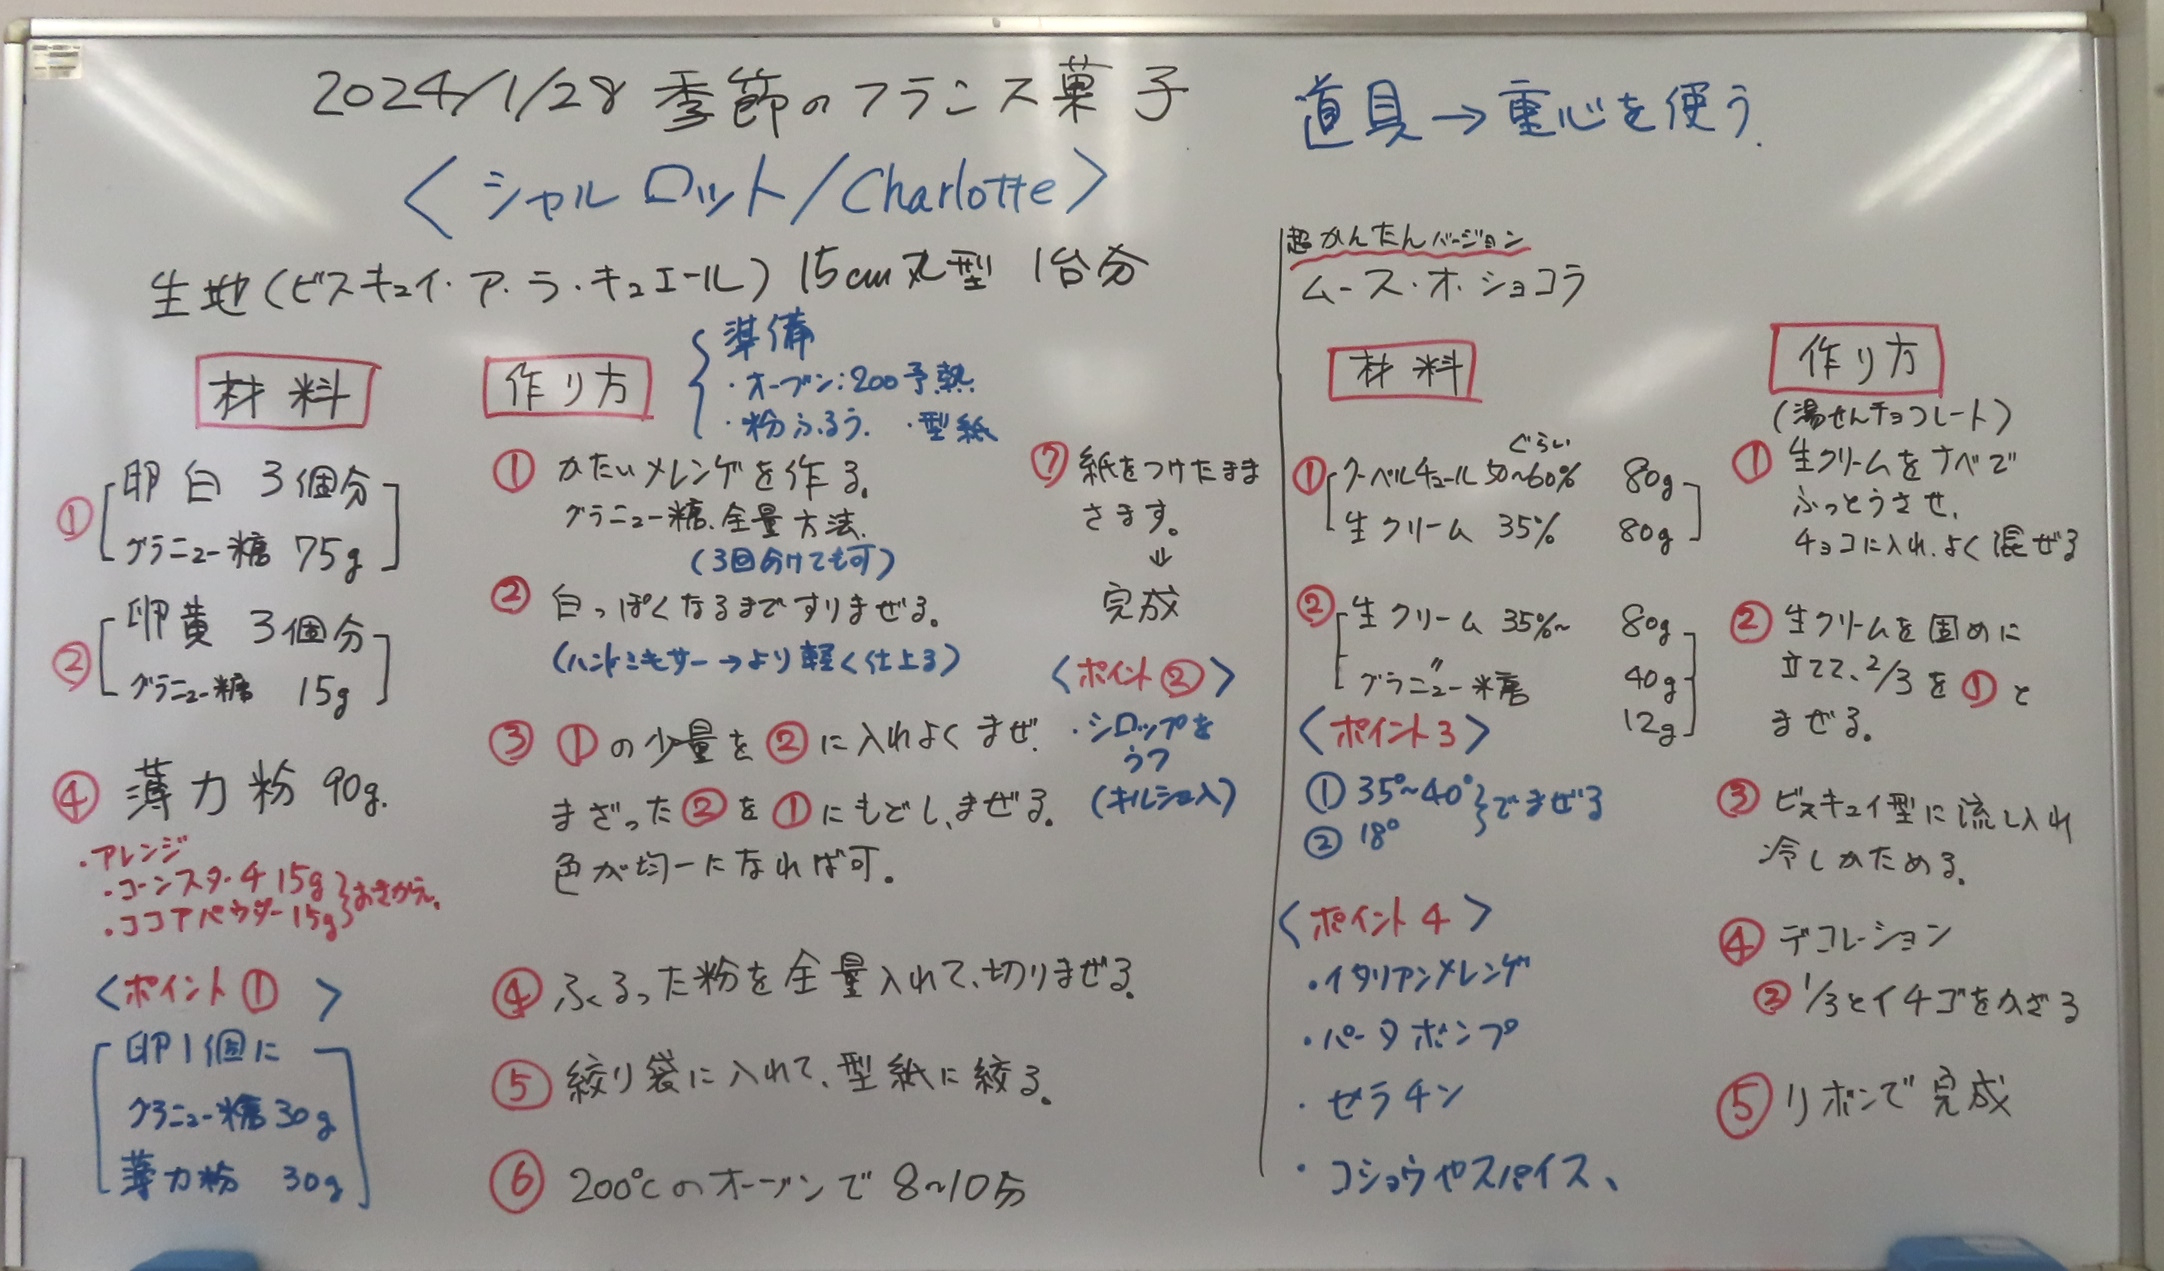 2024/1/28 季節のフランス菓子
<シャルロット/Charlotte>
道具→重心を使う.
生地(ビスキュイ・ア・ラ・キュエール) 15cm丸型 1台分
材料
① 卵白 3個分
グラニュー糖 75g
② 卵黄 3個分
グラニュー糖 15g
④ 薄力粉 90g.
・アレンジ
・コーンスターチ 15g
・ココアパウダー 15g } おきかえ.
<ポイント①>
卵1個に
グラニュー糖 30g
薄力粉 30g
作り方
準備
・オーブン:200予熱
・粉ふるう. ・型紙
① かたいメレンゲを作る。
グラニュー糖、全量方法.
(3回分けても可)
② 白っぽくなるまですりまぜる。
(ハンドミキサー→より軽く仕上る)
③ ①の少量を②に入れよくまぜ.
まざった②を①にもどし、まぜる。
色が均一になれば可。
④ ふるった粉を全量入れて、切りまぜる。
⑤ 絞り袋に入れて、型紙に絞る。
⑥ 200℃のオーブンで 8~10分
⑦ 紙をつけたまま
さます。
⇓
完成
<ポイント②>
・シロップを
うつ
(キルシュ入)
超かんたんバージョン
ムース・オ・ショコラ
材料
ぐらい
① クーベルチュール 50~60% 80g
生クリーム 35% 80g
② 生クリーム 35%~ 80g
〃 40g
グラニュー糖 12g
<ポイント3>
① 35°~40°
② 18° } でまぜる
<ポイント4>
・イタリアンメレンゲ
・パータボンブ
・ゼラチン
・コショウやスパイス、
作り方
(湯せんチョコレート)
① 生クリームをナベで
ふっとうさせ、
チョコに入れ、よく混ぜる
② 生クリームを固めに
立てて、2/3を①と
まぜる。
③ ビスキュイ型に流し入れ
冷しかためる。
④ デコレーション
② 1/3とイチゴをかざる
⑤ リボンで完成